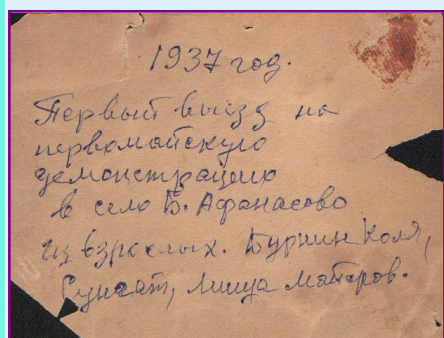 1937 год.
Первый выезд на
первомайскую
демонстрацию
в село Б. Афанасово
из взрослых. Бурмин Коля,
Миша Маторов.